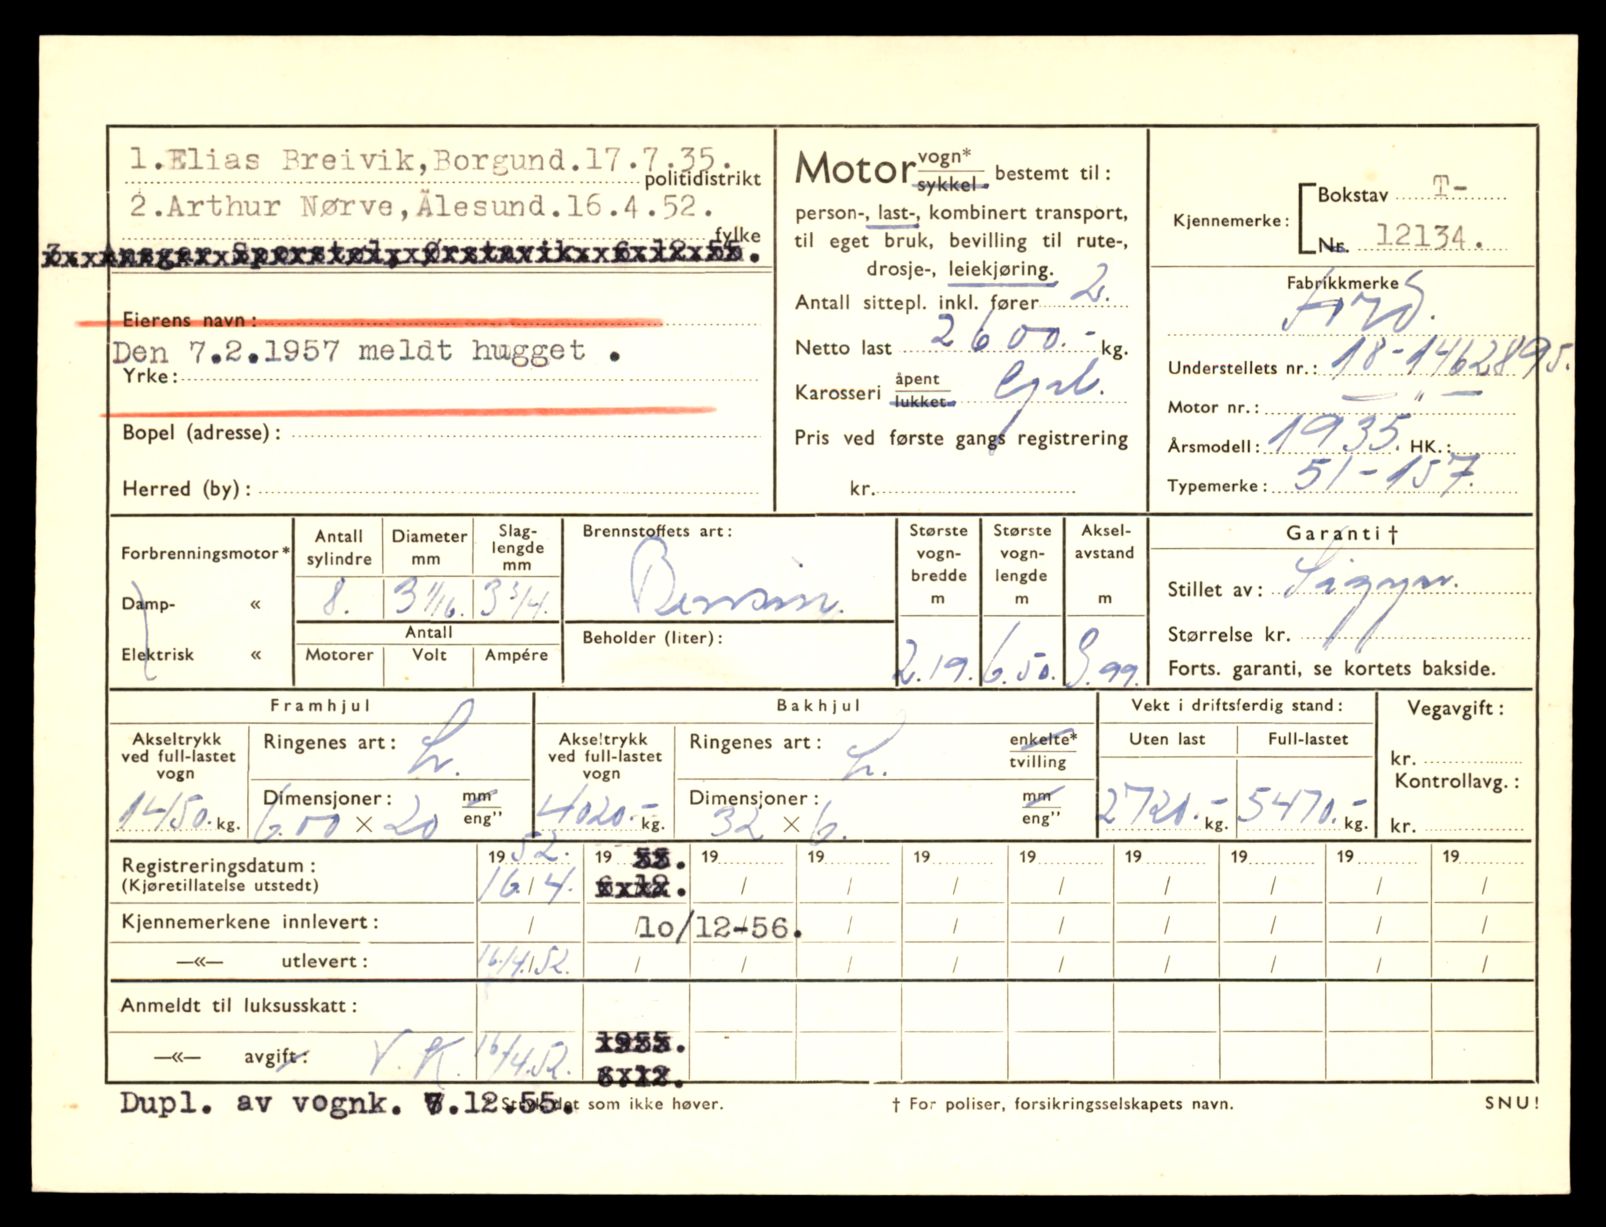 1.Elias Breivik,Borgund.17.7.35.
politidistrikt
2.Arthur Nørve,Ålesund.16.4.52.
fylke
3. Ansgar Sporstøl, Ørstavik 6.12.55.
Eierens navn:
Den 7.2.1957 meldt hugget .
Yrke:
Bopel (adresse):
Herred (by):
Motor vogn* / sykkel bestemt til:
person-, last-, kombinert transport,
til eget bruk, bevilling til rute-,
drosje-, leiekjøring.
Antall sittepl. inkl. fører 2.
Netto last 2600.- kg.
Karosseri åpent / lukket
Pris ved første gangs registrering
kr.
Kjennemerke: Bokstav T-
Nr. 12134.
Fabrikkmerke
Ford.
Understellets nr.: 18-1462895.
Motor nr.: — " —
Årsmodell: 1935. HK.:
Typemerke: 51-157.
Forbrenningsmotor*
Damp- «
Elektrisk «
Antall sylindre 8.
Diameter mm 3 1/16.
Slag-lengde mm 3 3/4.
Antall
Motorer Volt Ampére
Brennstoffets art:
Bensin.
Beholder (liter):
Største vogn-bredde m 2.19.
Største vogn-lengde m 6.50.
Aksel-avstand m 3.99.
Garanti †
Stillet av: Sigyn.
Størrelse kr.
Forts. garanti, se kortets bakside.
Framhjul
Akseltrykk ved full-lastet vogn
1450.- kg.
Ringenes art: L.
Dimensjoner: mm / eng"
6.00 × 20
Bakhjul
Akseltrykk ved full-lastet vogn
4020.- kg.
Ringenes art: L.
enkelte* / tvilling
Dimensjoner: mm / eng"
32 × 6.
Vekt i driftsferdig stand:
Uten last Full-lastet
2720.- kg. 5470.- kg.
Vegavgift:
kr.
Kontrollavg.:
kr.
Registreringsdatum: 1952. 19 55. 19 19 19 19 19 19 19 19
(Kjøretillatelse utstedt) 16/4. 6.12. / / / / / / / /
Kjennemerkene innlevert: / 10/12-56. / / / / / / /
—«— utlevert: 16/4.52. / / / / / / / / /
Anmeldt til luksusskatt:
—«— avgift: V.K. 16/4.52. 1955.
6.12.
Dupl. av vognk. 7.12.55.
* Stryk det som ikke høver.
† For poliser, forsikringsselskapets navn.
SNU!